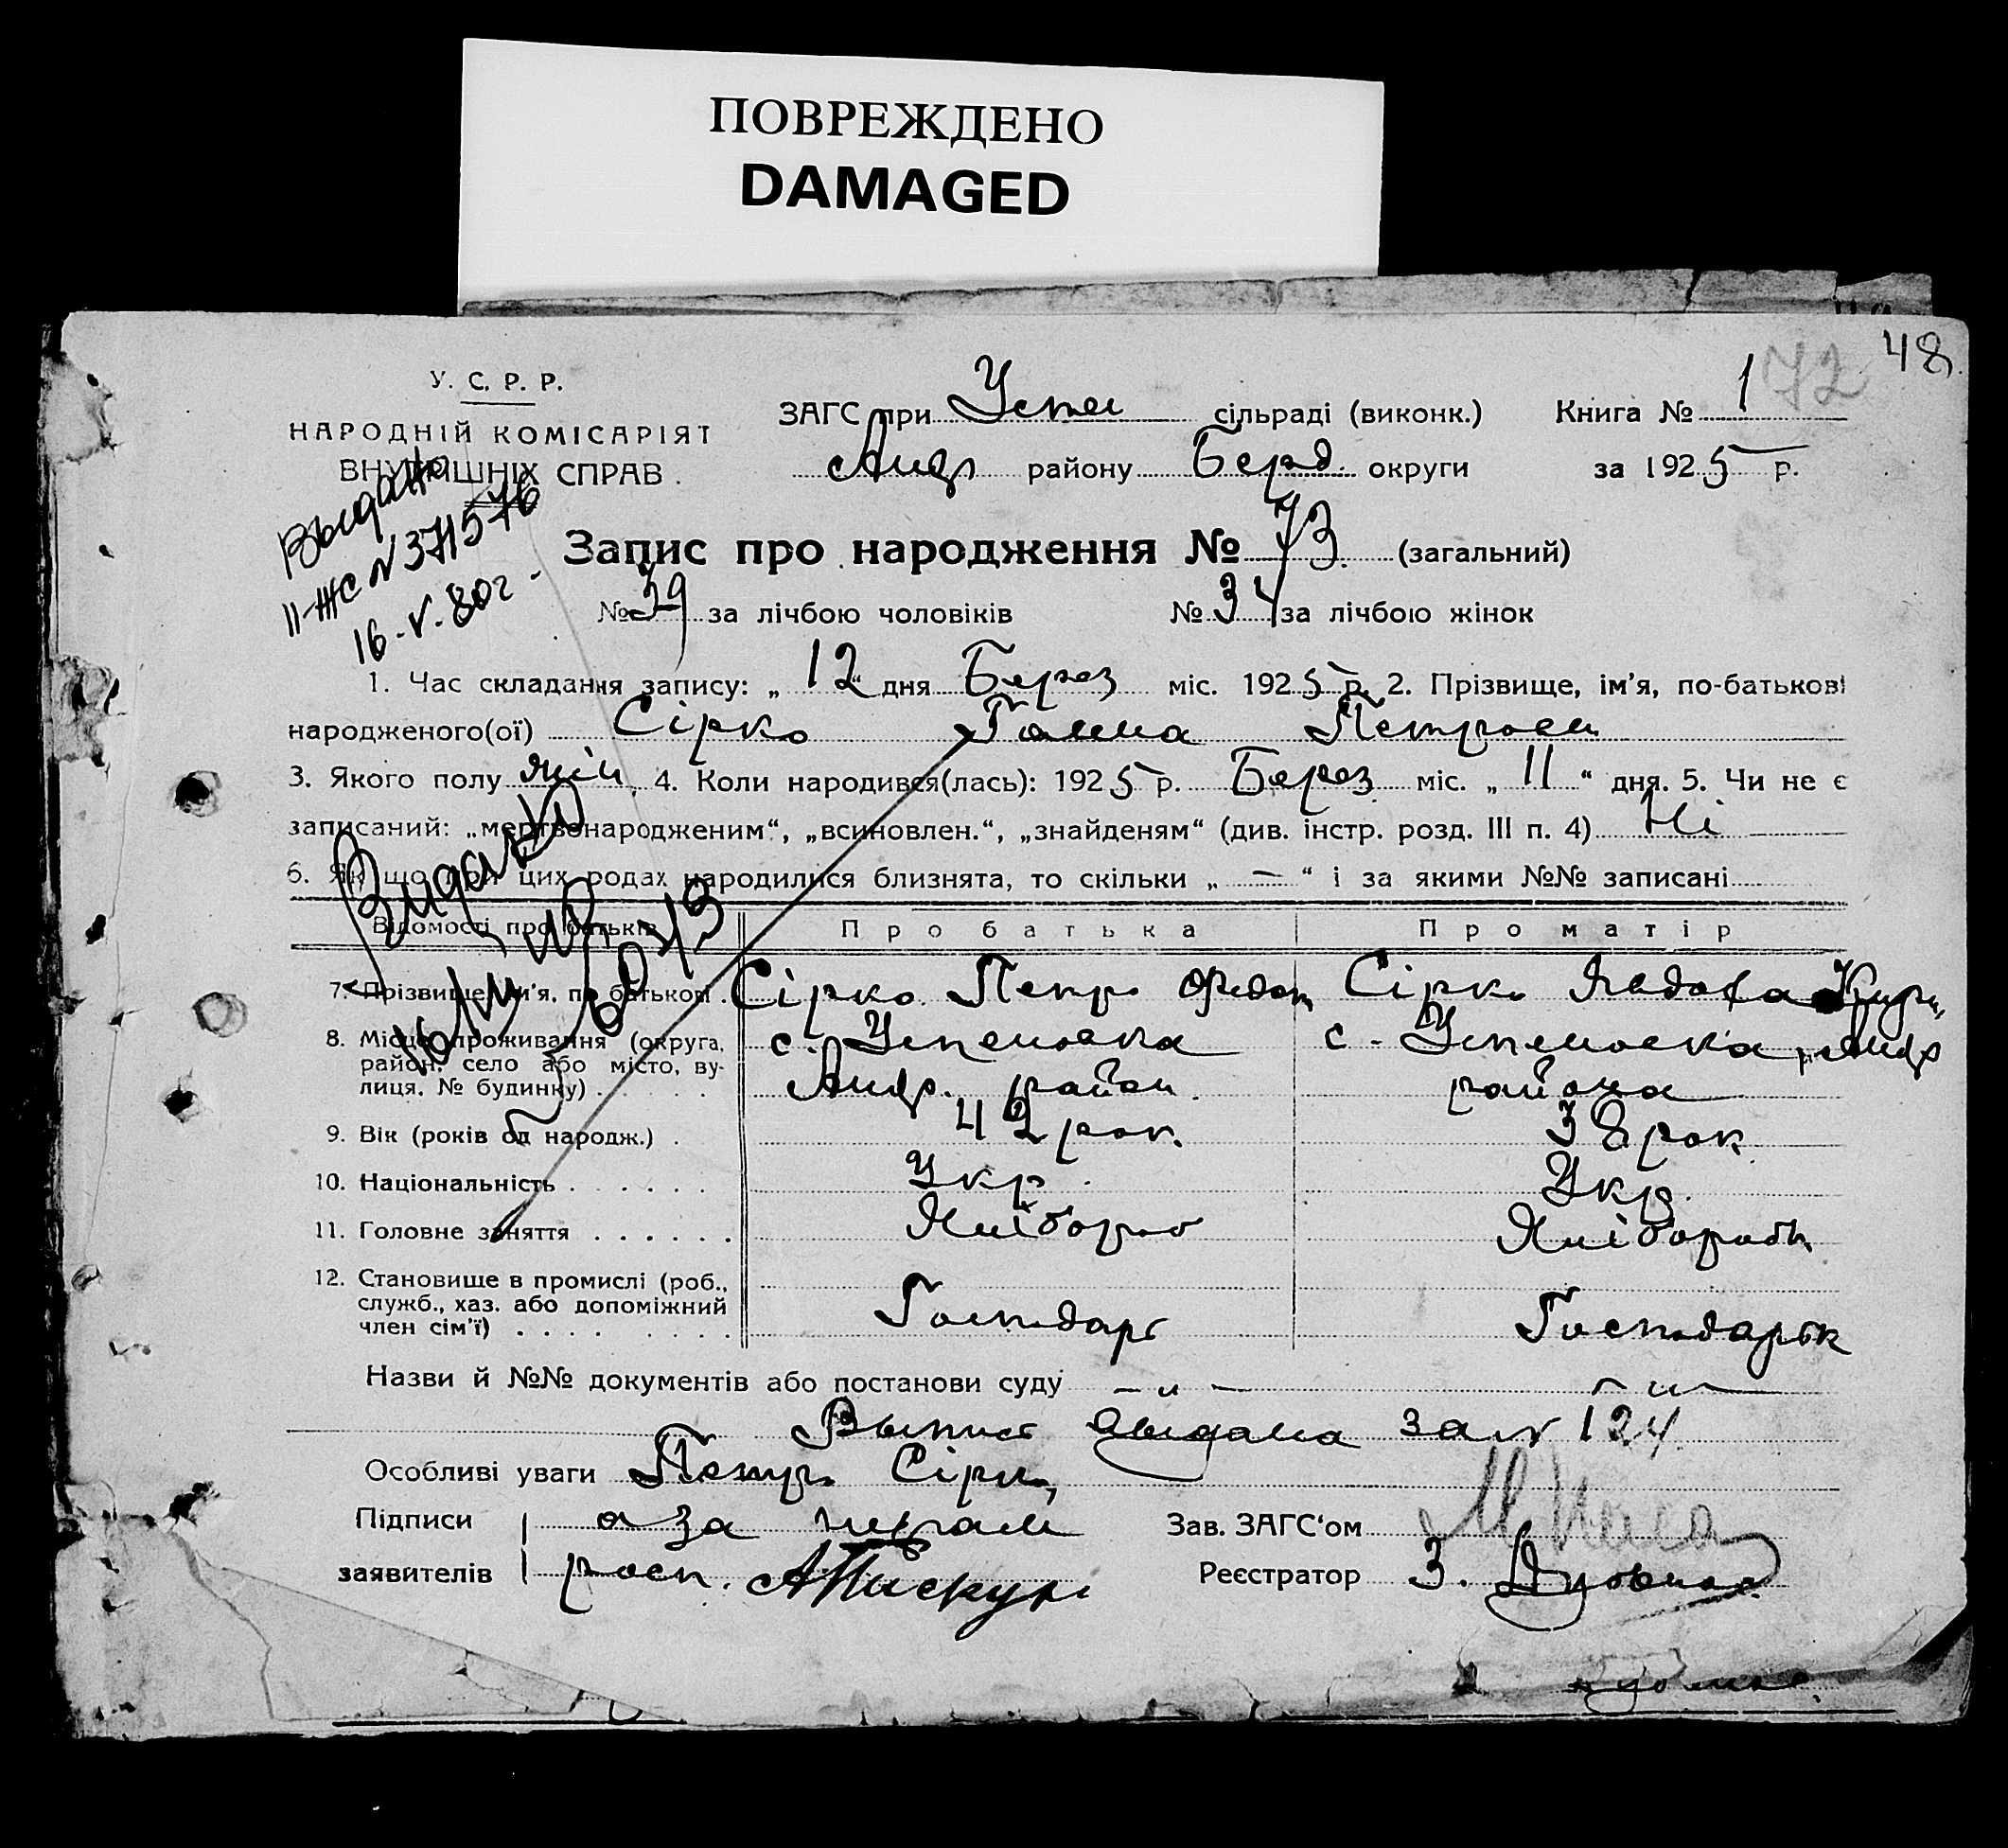 ПОВРЕЖДЕНО
DAMAGED
48
72
У. С. Р. Р.
НАРОДНІЙ КОМІСАРІЯТ
ВНУТРІШНІХ СПРАВ.
ЗАГС при Успен сільраді (виконк.) Книга № 1
Андр району Берд. округи за 1925 р.
Выдано
II-ЖС N 371576
16-V-80г.
Запис про народження № 73. (загальний)
№ 39 за лічбою чоловіків № 34 за лічбою жінок
1. Час складання запису: „12“ дня Берез міс. 1925 р. 2. Прізвище, ім'я, по-батькові
народженого(ої) Сірко Ганна Петровн
3. Якого полу жін. 4. Коли народився(лась): 1925 р. Берез міс. „11“ дня. 5. Чи не є
записаний: „мертвонародженим“, „всиновлен.“, „знайденям“ (див. інстр. розд. III п. 4) Ні
6. Якщо при цих родах народилися близнята, то скільки „—“ і за якими №№ записані
Видано
Відомості про батьків Про батька Про матір
7. Прізвище, ім'я, по батькові. Сірко Петро Федот Сірко Явдоха
8. Місце проживання (округа, район, село або місто, вулиця, № будинку) с. Успеновка Андр. район с. Успеновка, Андр района
9. Вік (років од народж.) 42 рок. 38 рок
10. Національність Укр. Укр.
11. Головне заняття Хлібороб Хліборобк
12. Становище в промислі (роб., служб., хаз. або допоміжний член сім'ї) Господарь Господарьк
Назви й №№ документів або постанови суду — „ — — „ —
Выпись выдана за N 124
Особливі уваги Петро Сірко,
Підписи а за неграм
Зав. ЗАГС'ом
заявителів росп. А Пискун
Реєстратор З.